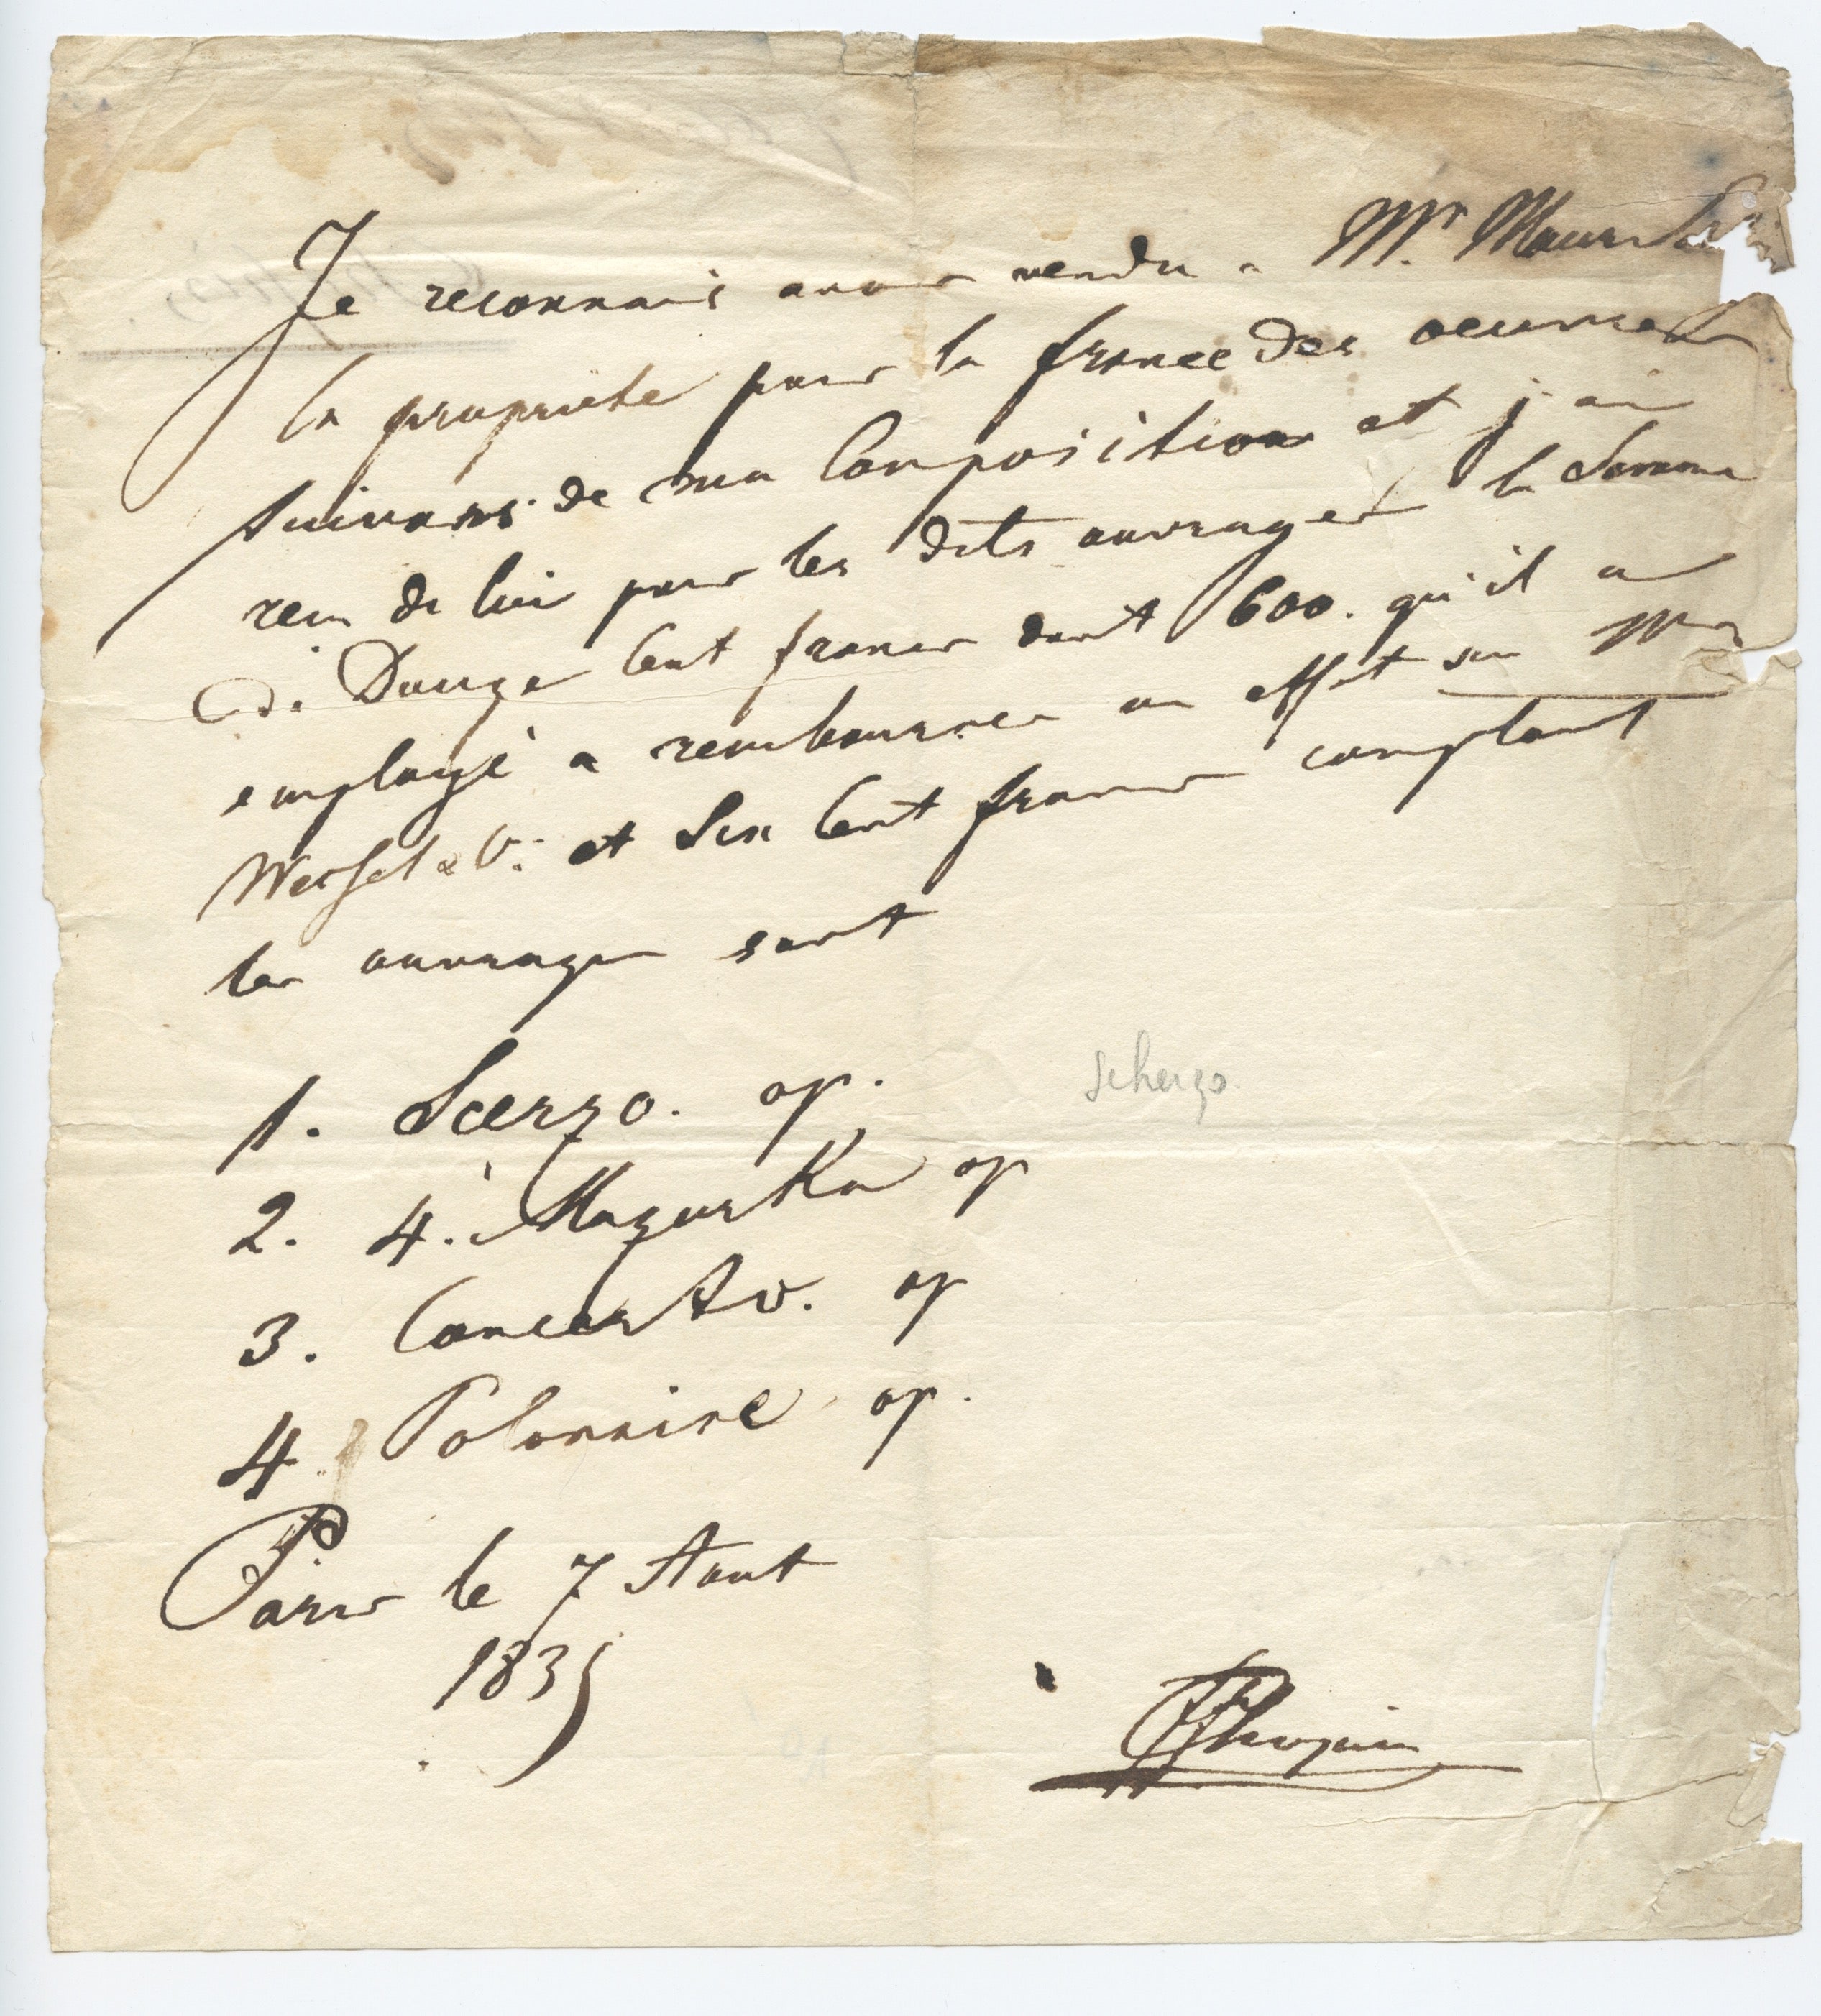 Je reconnais avoir vendu a Mr. Maurice
la propriete pour la france des oeuvres
suivans de ma Composition et j'ai
recu de lui pour les dits ouvrages la Somme
de Douze Cent francs dont 600. qu'il a
employé a rembourser un effet sur Mrs
Wessel & C: et Six Cent francs comptant
les ouvrages sont
1. Scerzo. op.
scherzo.
2. 4. Mazurka op
3. Concerto. op
4. Polonaise op.
Paris le 7 Aout
1835
FChopin